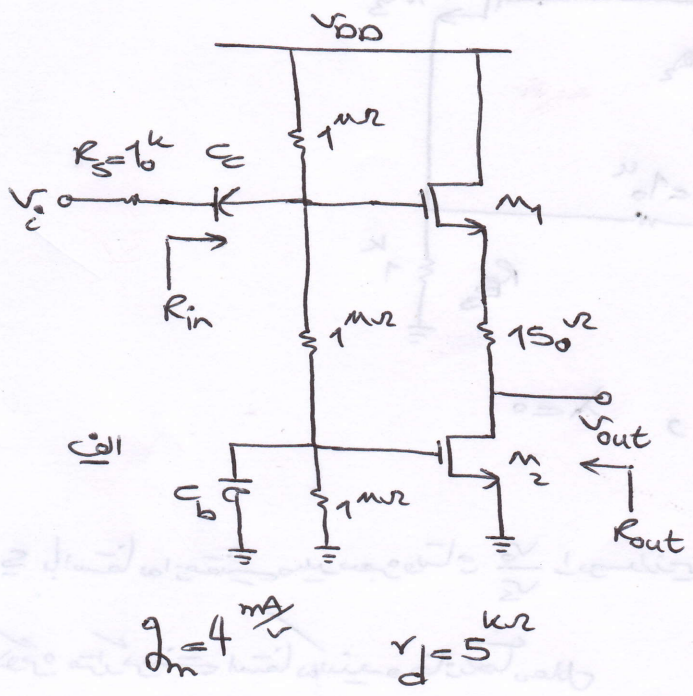 V_DD
1 MΩ
R_s=10 k
C_c
V_i
M_1
R_in
1 MΩ
150 Ω
الف
V_out
C_b
M_2
1 MΩ
R_out
g_m=4 mA/V
r_d=5 kΩ